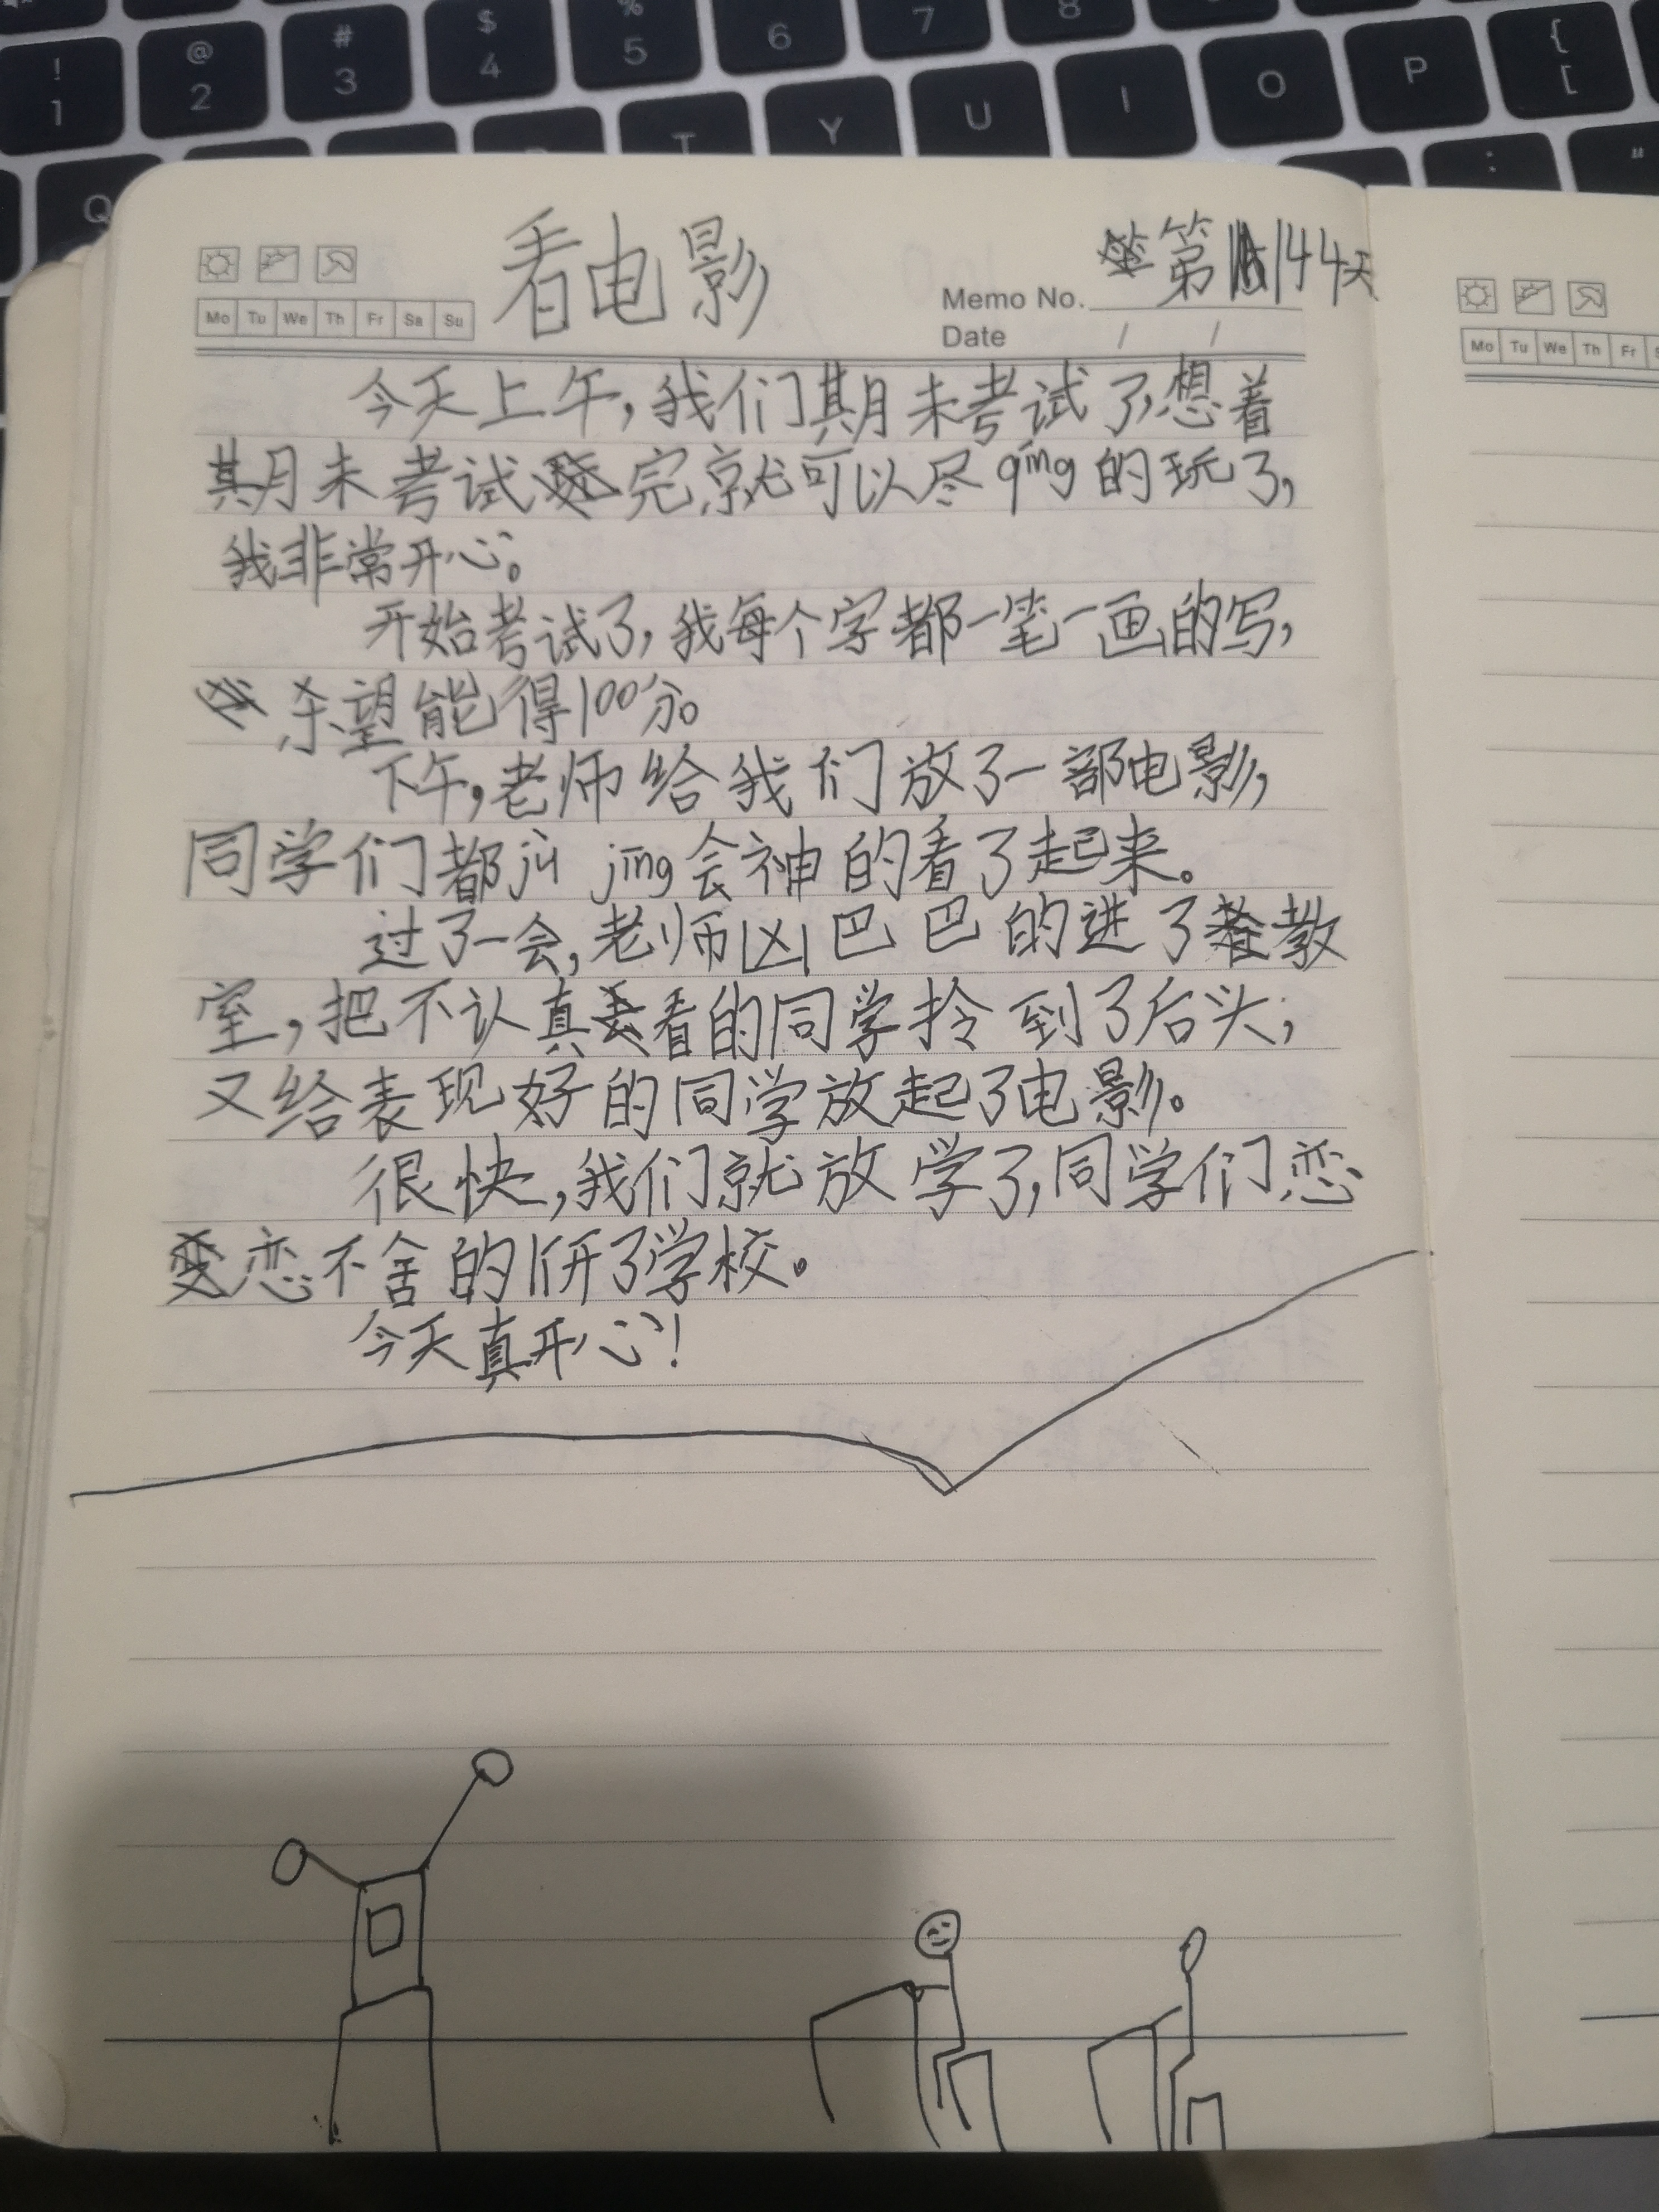 ! 1
@ 2
# 3
$ 4
% 5
6
7
8
Q
T
Y
U
I
O
P
{ [
:
"
看电影
第144天
Memo No.
Mo Tu We Th Fr Sa Su
Date / /
今天上午,我们期末考试了,想着
期末考试完就可以尽qíng的玩了,
我非常开心。
开始考试了,我每个字都一笔一画的写,
希望能得100分。
下午,老师给我们放了一部电影,
同学们都jù jīng会神的看了起来。
过了一会,老师凶巴巴的进了教
室,把不认真看的同学拎到了后头,
又给表现好的同学放起了电影。
很快,我们就放学了,同学们恋
恋不舍的离开了学校。
今天真开心!
Mo Tu We Th Fr